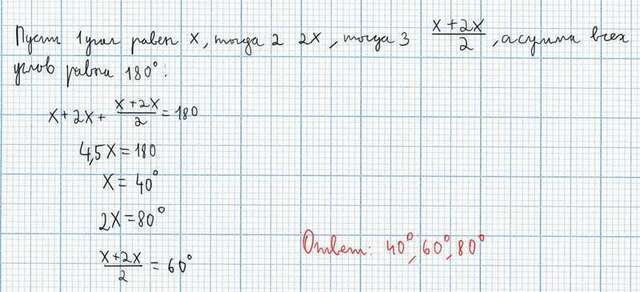 Пусть 1 угол равен x, тогда 2 2x, тогда 3 (x+2x)/2, а сумма всех
углов равна 180°.
x+2x+(x+2x)/2=180
4,5x=180
x=40°
2x=80°
(x+2x)/2=60°
Ответ: 40°,60°,80°